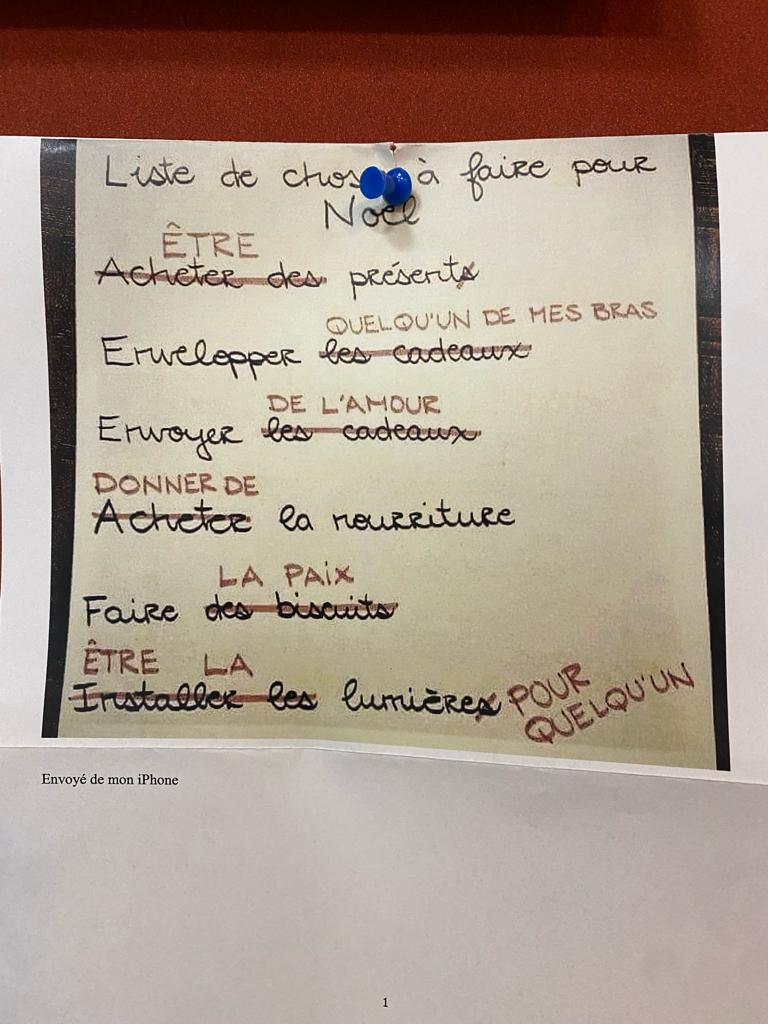 Liste de choses à faire pour
Noël
ÊTRE
Acheter des présents
QUELQU'UN DE MES BRAS
Envelopper les cadeaux
DE L'AMOUR
Envoyer les cadeaux
DONNER DE
Acheter la nourriture
LA PAIX
Faire des biscuits
ÊTRE LA
Installer les lumières POUR
QUELQU'UN
Envoyé de mon iPhone
1